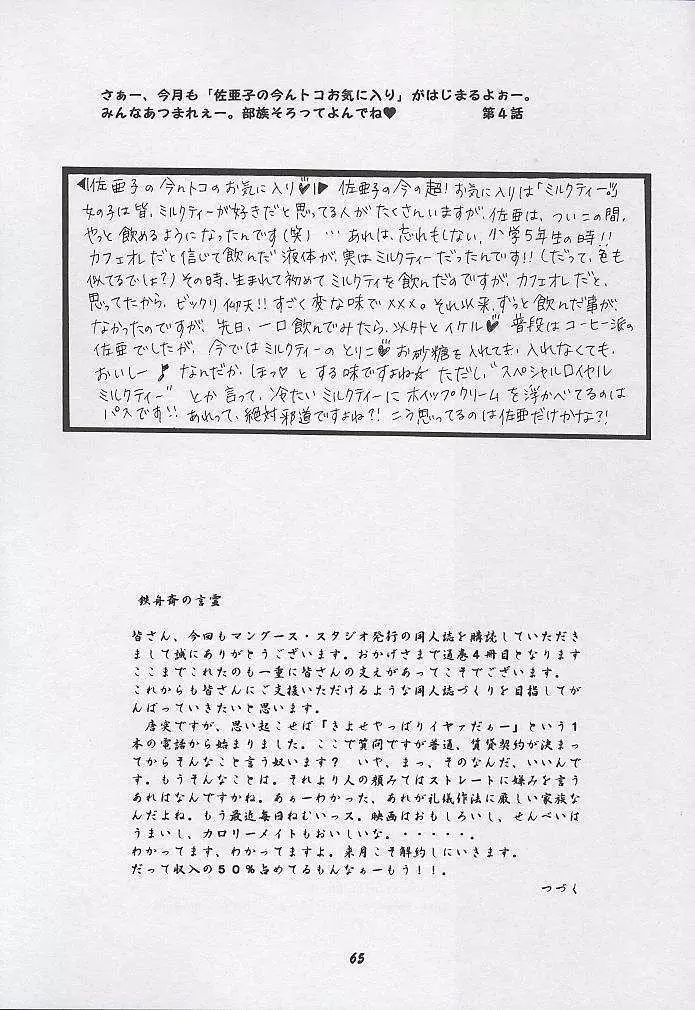 さぁー、今月も「佐亜子の今んトコお気に入り」がはじまるよぉー。
みんなあつまれぇー。部族そろってよんでね♥ 第４話
佐亜子の今んトコのお気に入り♥ 佐亜子の今の超！お気に入りは「ミルクティー」。
女の子は皆、ミルクティーが好きだと思ってる人がたくさんいますが、佐亜は、ついこの間、
やっと飲めるようになったんです（笑）…あれは、忘れもしない、小学５年生の時！！
カフェオレだと信じて飲んだ液体が、実はミルクティーだったんです！！（だって、色も
似てるでしょ？）その時、生まれて初めてミルクティを飲んだのですが、カフェオレだと、
思ってたから、ビックリ仰天！！すごく変な味で×××。それ以来、ずっと飲んだ事が、
なかったのですが、先日、一口飲んでみたら、以外とイケル♥ 普段はコーヒー派の
佐亜でしたが、今ではミルクティーのとりこ♥ お砂糖を入れても、入れなくても、
おいしー♪ なんだか、ほっ♡とする味ですよね☆ ただし、“スペシャルロイヤル
ミルクティー”とか言って、冷たいミルクティーにホイップクリームを浮かべてるのは
パスです！！あれって、絶対邪道ですよね？！こう思ってるのは佐亜だけかな？！
鉄舟斎の言霊
皆さん、今回もマングース・スタジオ発行の同人誌を購読していただき
まして誠にありがとうございます。おかげさまで通巻４冊目となります
ここまでこれたのも一重に皆さんの支えがあってこそでございます。
これからも皆さんにご支援いただけるような同人誌づくりを目指してが
んばっていきたいと思います。
唐突ですが、思い起こせば「きよせやっぱりイヤァだぁー」という１
本の電話から始まりました。ここで質問ですが普通、賃貸契約が決まっ
てからそんなこと言う奴います？ いや、まっ、そのなんだ、いいんで
す。もうそんなことは。それより人の顔みてはストレートに嫌みを言う
あれはなんですかね。あぁーわかった、あれが礼儀作法に厳しい家族な
んだよね。もう最近毎日ねむいっス。映画はおもしろいし、せんべいは
うまいし、カロリーメイトもおいしいな。・・・・・。
わかってます、わかってますよ。来月こそ解約しにいきます。
だって収入の５０％占めてるもんなぁーもう！！。
つづく
65